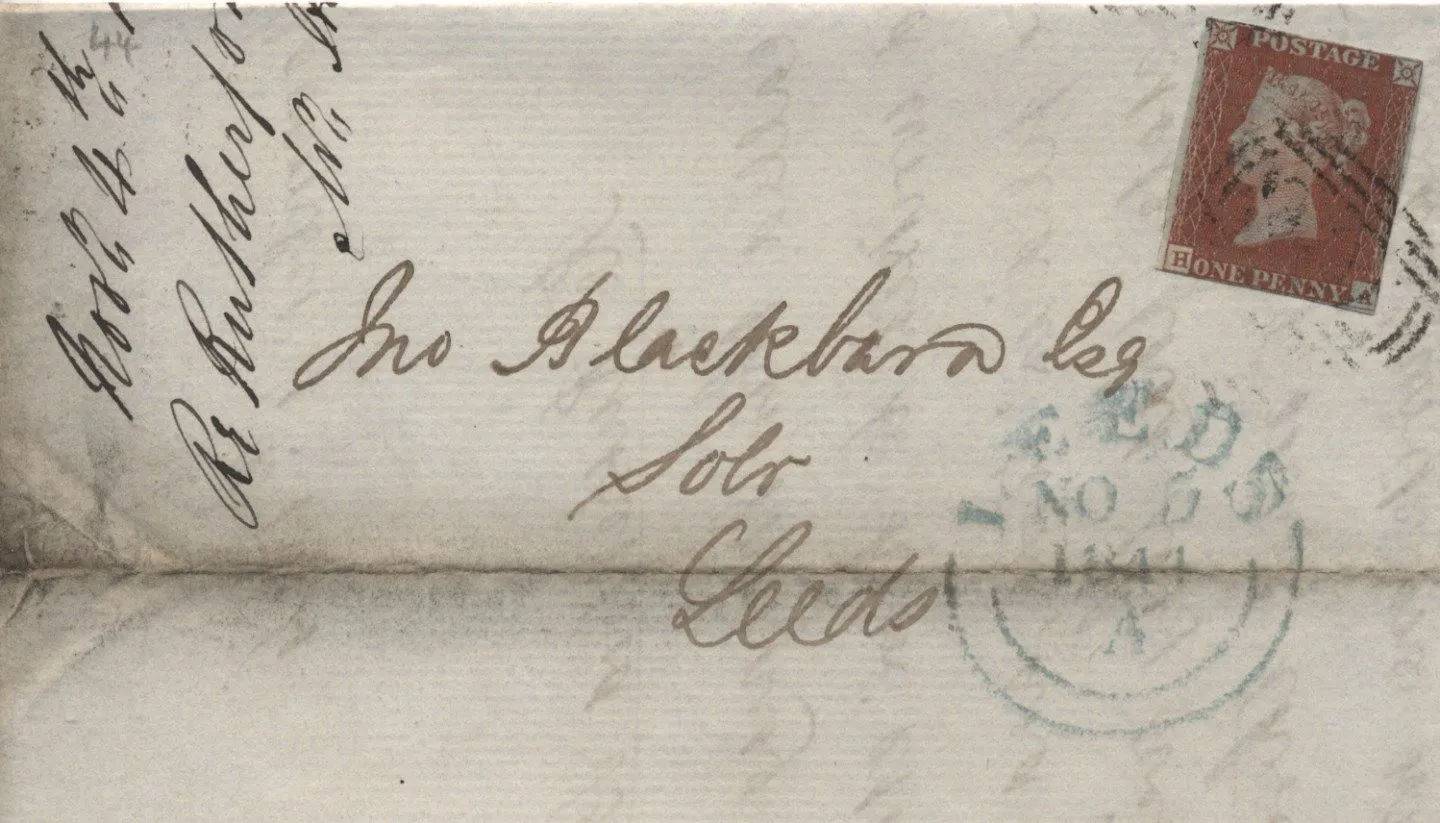 44
4th
Re Rutherfo
POSTAGE
H ONE PENNY A
Jno Blackburn Esq
Solr
Leeds
LEEDS
NO 5
1844
A